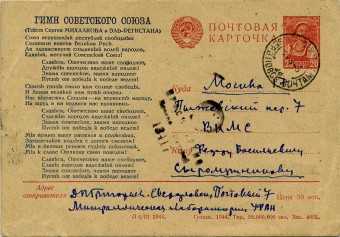 ГИМН СОВЕТСКОГО СОЮЗА
(Текст Сергея МИХАЛКОВА и ЭЛЬ-РЕГИСТАНА)
Союз нерушимый республик свободных
Сплотила навеки Великая Русь.
Да здравствует созданный волей народов,
Единый, могучий Советский Союз!
Славься, Отечество наше свободное,
Дружбы народов надёжный оплот!
Знамя советское, знамя народное
Пусть от победы к победе ведёт!
Сквозь грозы сияло нам солнце свободы,
И Ленин великий нам путь озарил.
Нас вырастил Сталин — на верность народу,
На труд и на подвиги нас вдохновил.
Славься, Отечество наше свободное,
Счастья народов надёжный оплот!
Знамя советское, знамя народное
Пусть от победы к победе ведёт!
Мы армию нашу растили в сраженьях,
Захватчиков подлых с дороги сметём!
Мы в битвах решаем судьбу поколений,
Мы к славе Отчизну свою поведём!
Славься, Отечество наше свободное,
Славы народов надёжный оплот!
Знамя советское, знамя народное
Пусть от победы к победе ведёт!
ПОЧТОВАЯ
КАРТОЧКА
20
Куда Москва
Пыжевский пер. 7
ВИМС
Кому Федору Васильевичу
Сыромятникову
Адрес
отправителя
Д.П. Григорьев. Свердловск, Почтовый 7
Минералогическая Лаборатория УФАН
Цена 30 коп.
1944.